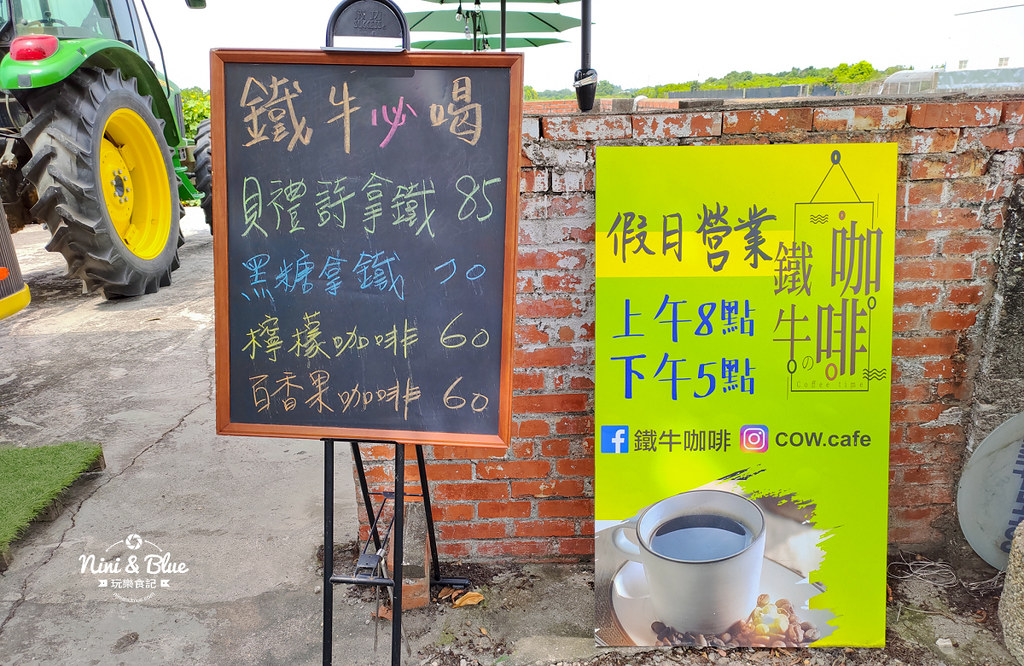 鐵牛必喝
貝禮詩拿鐵 85
黑糖拿鐵 70
檸檬咖啡 60
百香果咖啡 60
假日營業
上午8點
下午5點
鐵牛の咖啡
Coffee time
鐵牛咖啡 COW.cafe
Nini & Blue
玩樂食記